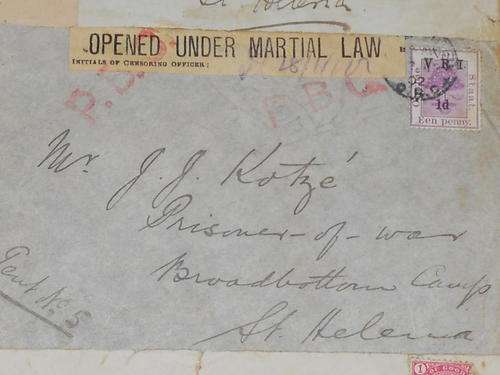 St Helena
OPENED UNDER MARTIAL LAW
INITIALS OF CENSORING OFFICER:
P.B.C
V.R.I.
1d
Een penny.
Mr. J. J. Kotzé
Prisoner-of-war
Broadbottom Camp
St. Helena
Tent No. 5